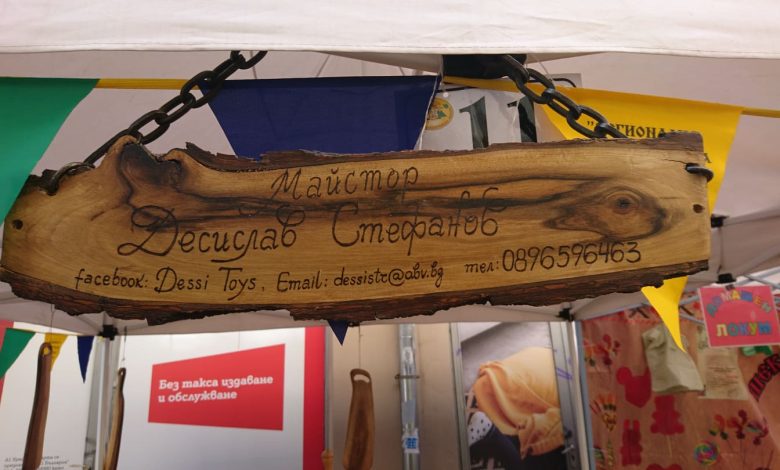 11
Майстор
Десислав Стефанов
facebook: Dessi Toys, Email: dessistr@abv.bg тел: 0896596463
Без такса издаване
и обслужване
ДОМАШЕН
ЛОКУМ